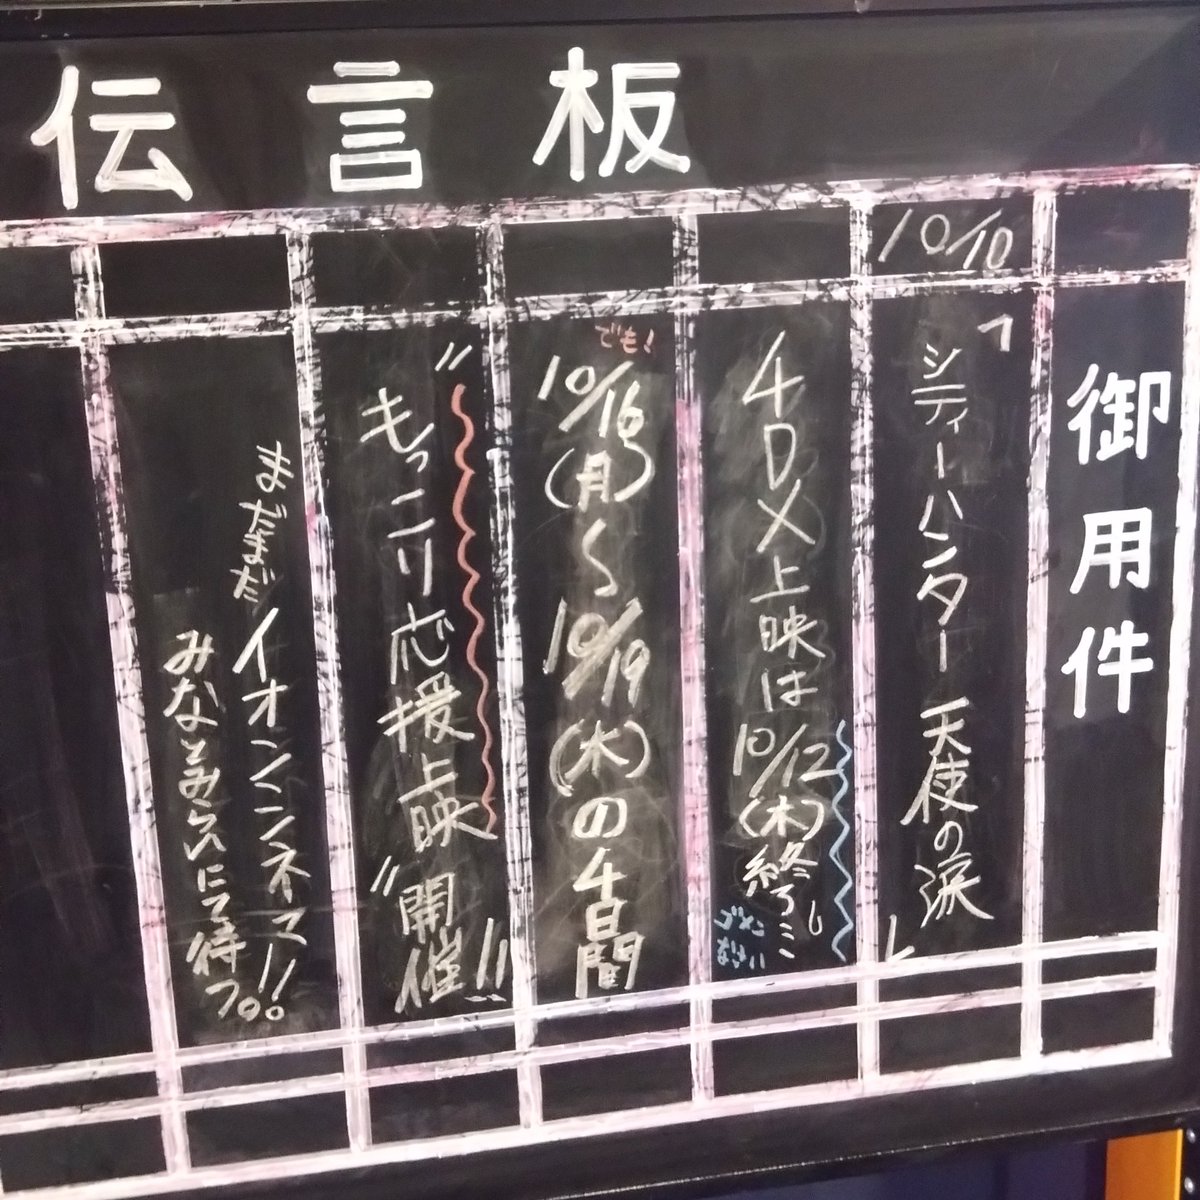 伝言板
御用件
10/10
「シティーハンター 天使の涙」
4DX上映は10/12(木)終了し…
ゴメンなさい!!
でも!
10/16(月)〜10/19(木)の4日間
"もっこり応援上映"開催!!
まだまだイオンシネマ!!
みなとみらいにて待つ。